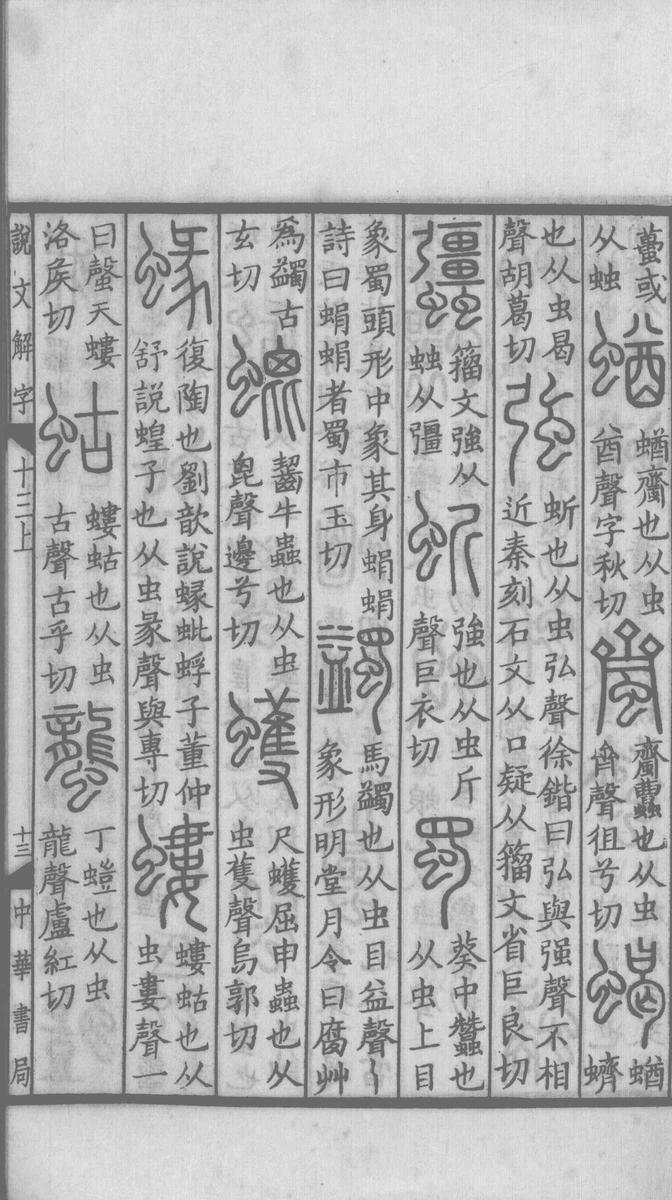 蠆或从䖵蝤蝤𧓉也从虫酋聲字秋切𧓉𧓉也从虫齊聲徂兮切蝎蝤蠐
也从虫曷聲胡葛切強蚚也从虫弘聲徐鍇曰弘與强聲不相近秦刻石文从口疑从籀文省巨良切
𧖑籀文強从䖵从彊蚚強也从虫斤聲巨衣切蜀葵中蠶也从虫上目
象蜀頭形中象其身蜎蜎詩曰蜎蜎者蜀市玉切蠲馬蠲也从虫目益聲象形明堂月令曰腐艸
爲蠲古玄切螕齧牛蟲也从虫𣬉聲邊兮切蠖尺蠖屈申蟲也从虫蒦聲烏郭切
蝝復陶也劉歆說蝝蚍蜉子董仲舒說蝗子也从虫彖聲與專切螻螻蛄也从虫婁聲一
曰螜天螻洛矦切蛄螻蛄也从虫古聲古乎切蠪丁螘也从虫龍聲盧紅切
說文解字 十三上 十三 中華書局